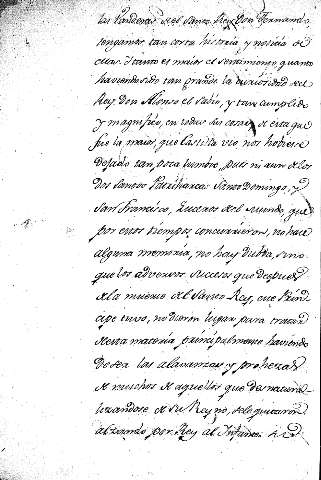 las Pandenas del Santo Rey Don Fernando
tengamos tan corta historia, y noticia de
ellas. Y tanto es maior el sentimiento, quanto
haviendo sido tan grande la curiosidad del
Rey, Don Alonso el Sabio, y tan cumplido
y magnifico, en todas sus cosas, es cierto que
fue la maior, que Castilla vio, nos hobiese
dejado tan poca lumbre, pues ni aun de los
dos Santos Patriharcas Santo Domingo, y
San Francisco, Luceros del Mundo, que
por estos tiempos concurrieron, no hace
alguna memoria, no hay dubda, sino
que los adversos sucesos que despues
de la muerte del Santo Rey, este Prin
cipe tuvo, no dieron lugar para tratar
desta materia, principalmente haviendo
de ser las alavanzas, y prohezas
de muchos de aquellos que desnatura
lizandose de su Reyno, se le quitaron
alzando por Rey al Infante